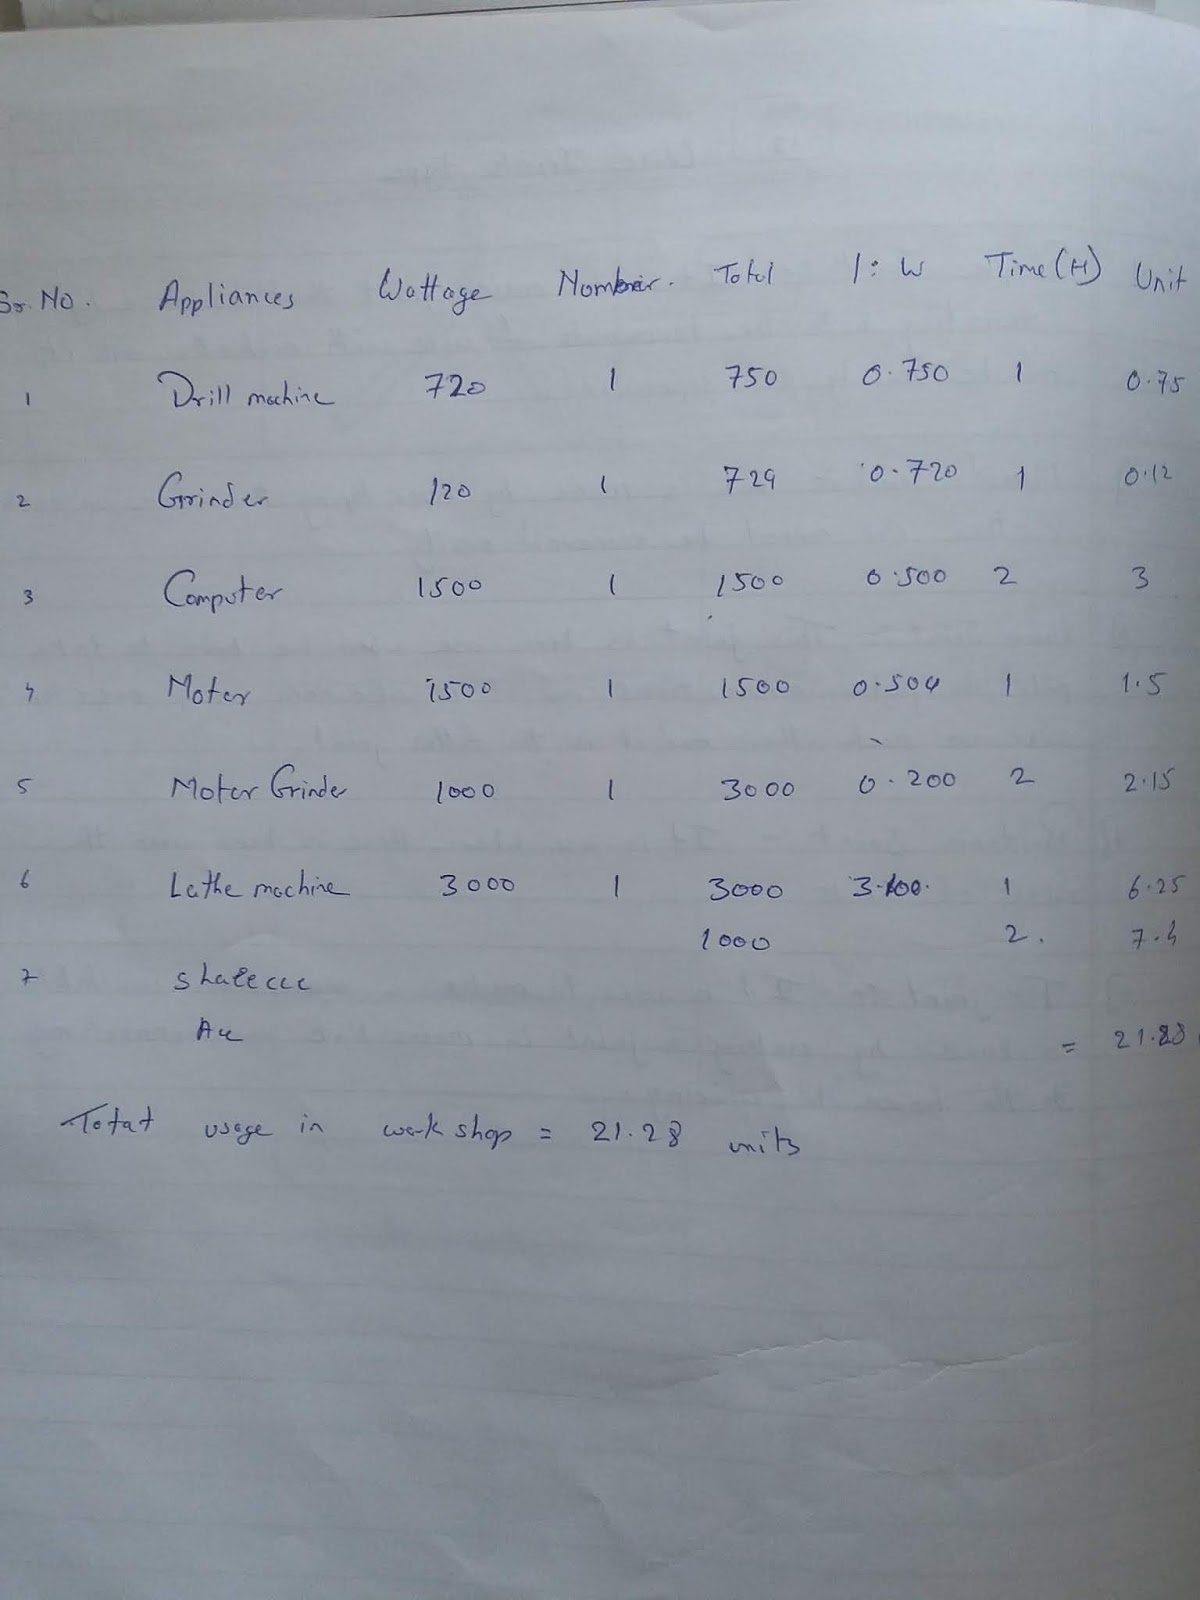 Sr. No. Appliances Wattage Number. Total 1: W Time (H) Unit
1 Drill machine 720 1 750 0.750 1 0.75
2 Grinder 120 1 729 0.720 1 0.12
3 Computer 1500 1 1500 0.500 2 3
4 Motor 1500 1 1500 0.504 1 1.5
5 Motor Grinder 1000 1 3000 0.200 2 2.15
6 Lathe machine 3000 1 3000 3.100. 1 6.25
1000 2. 7.
7
= 21.28
Total usage in workshop = 21.28 units